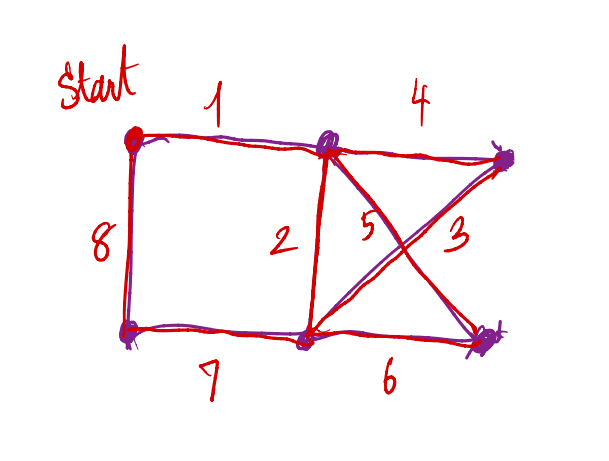 Start
1
4
8
2
5
3
7
6